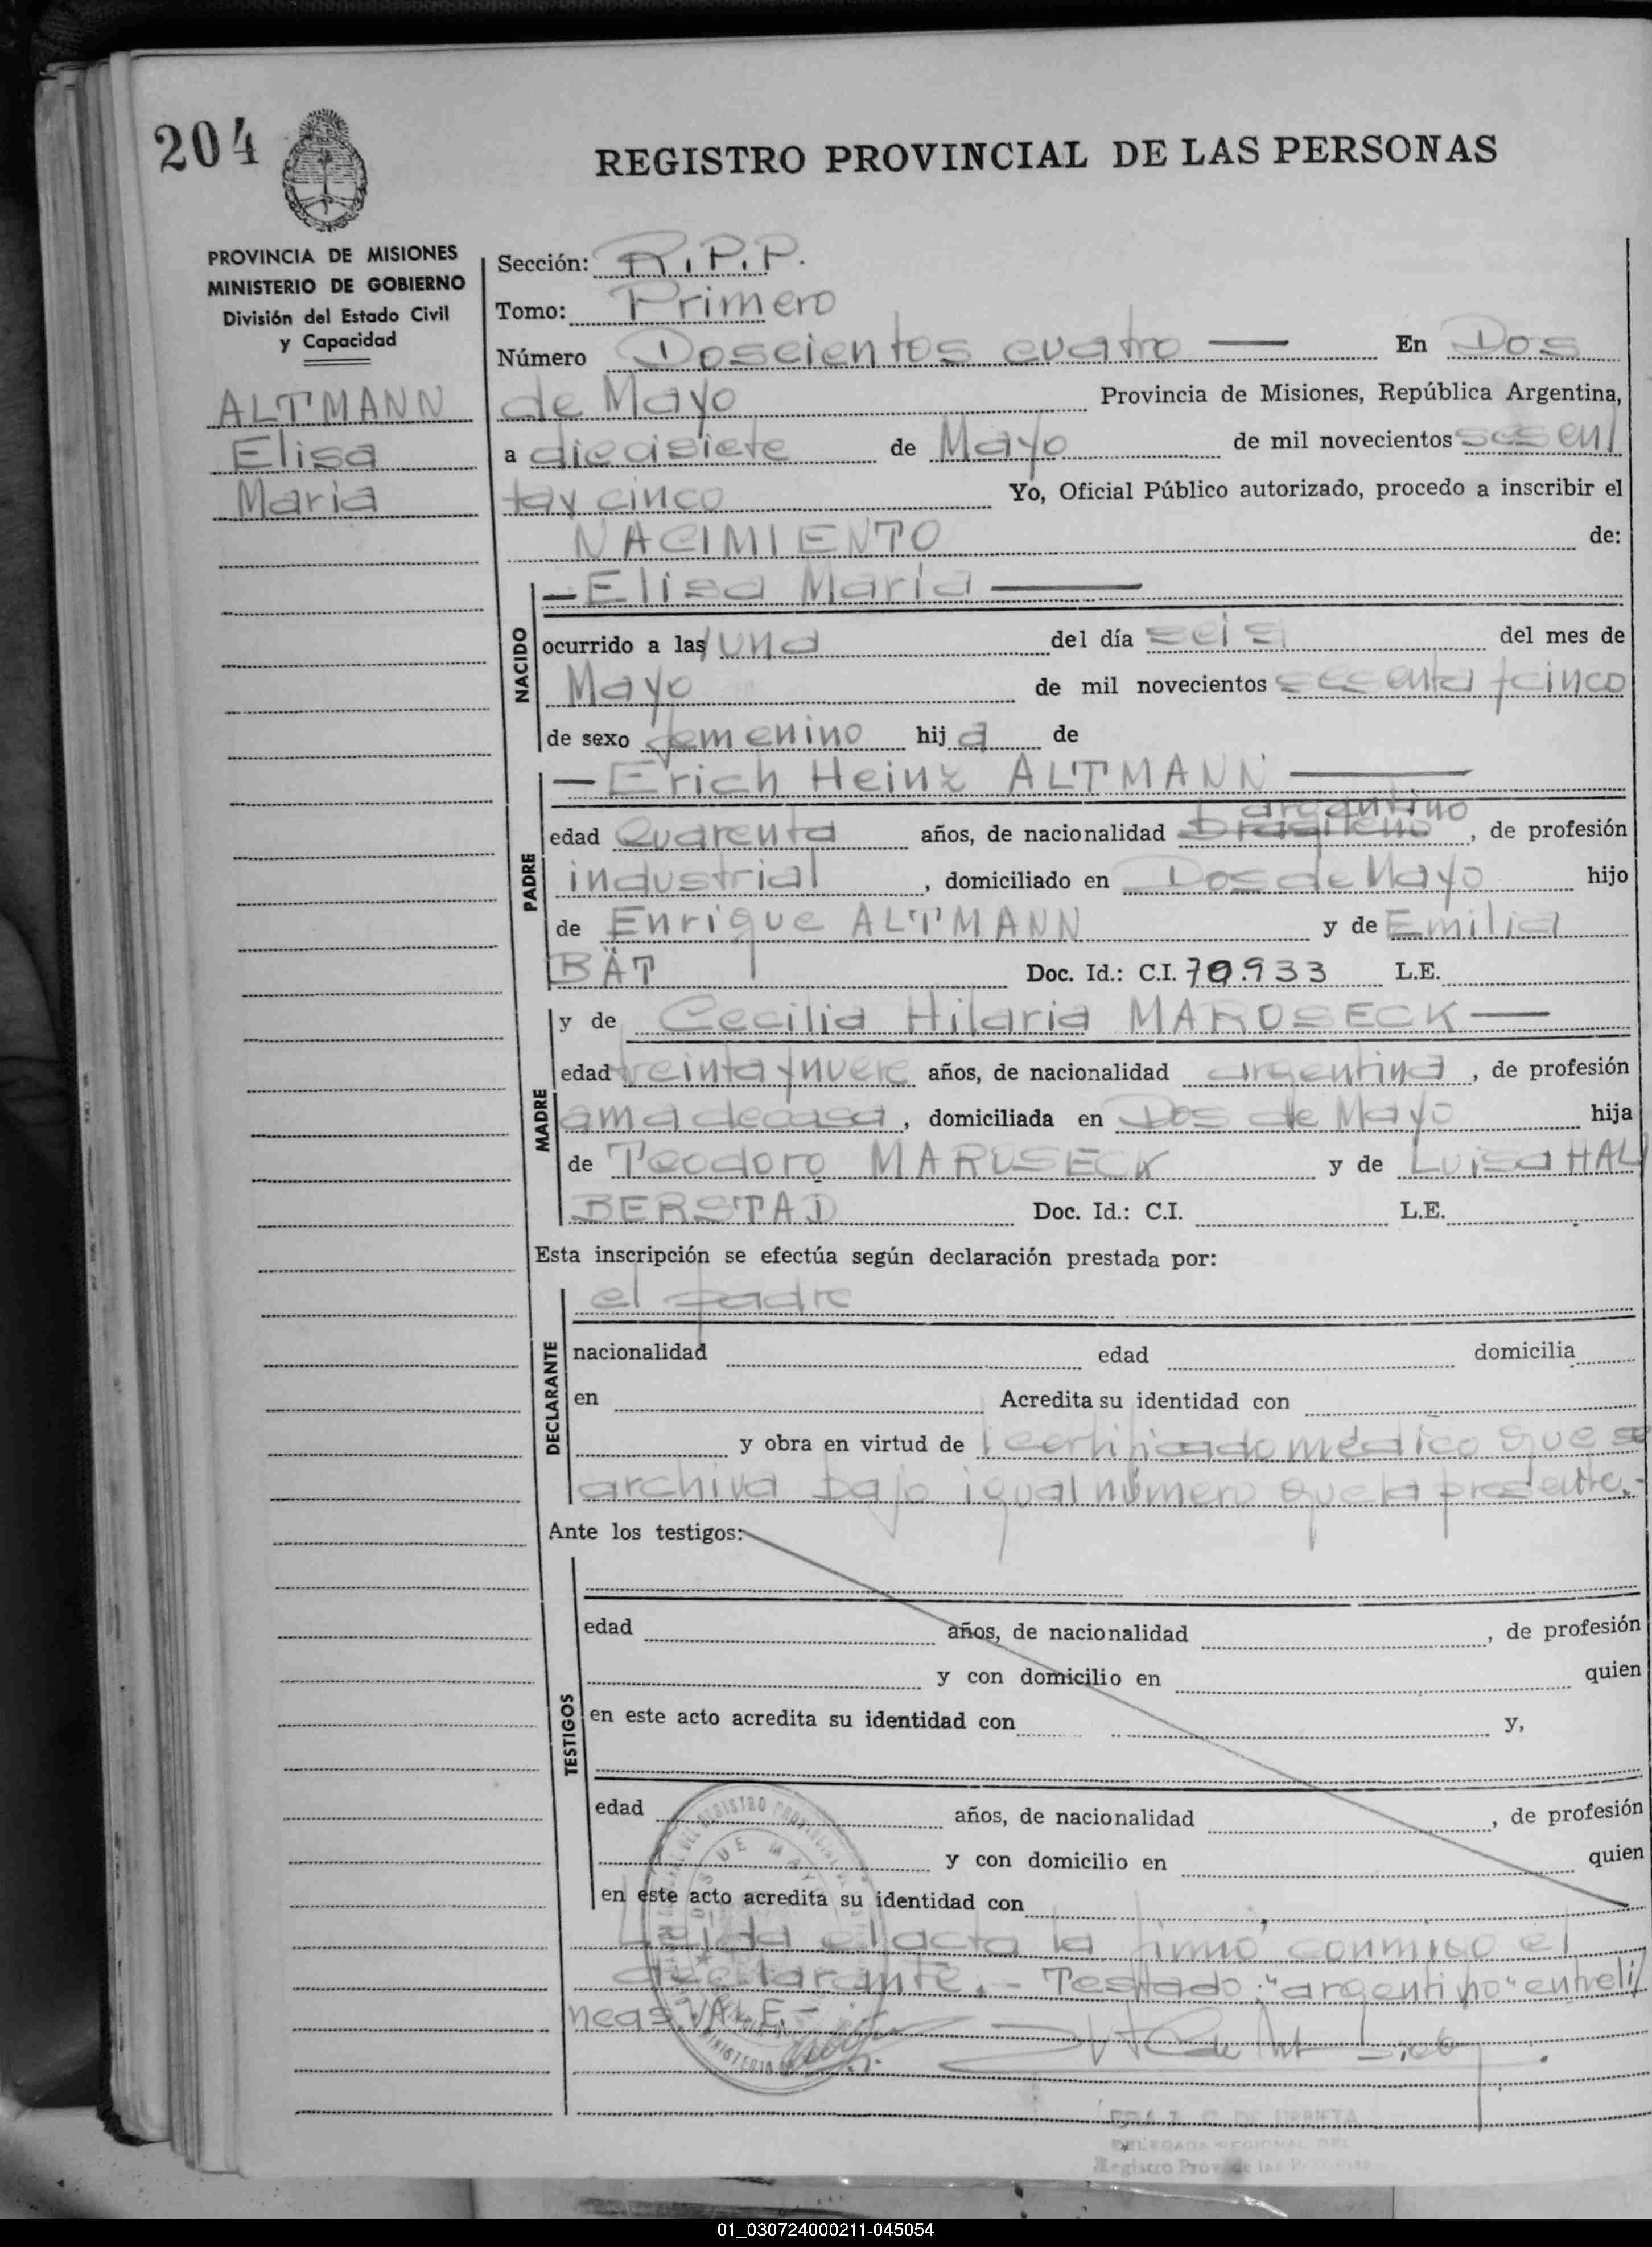 204
REGISTRO PROVINCIAL DE LAS PERSONAS
PROVINCIA DE MISIONES
MINISTERIO DE GOBIERNO
División del Estado Civil
y Capacidad
ALTMANN
Elisa
Maria
Sección: R.P.P.
Tomo: Primero
Número Doscientos cuatro — En Dos
de Mayo Provincia de Misiones, República Argentina,
a diecisiete de Mayo de mil novecientos sesen/
tay cinco Yo, Oficial Público autorizado, procedo a inscribir el
NACIMIENTO de:
NACIDO
— Elisa María —
ocurrido a las una del día seis del mes de
Mayo de mil novecientos sesenta y cinco
de sexo femenino hija de
PADRE
— Erich Heinz ALTMANN —
argentino
edad Cuarenta años, de nacionalidad brasileno, de profesión
industrial, domiciliado en Dos de Mayo hijo
de Enrique ALTMANN y de Emilia
BÄT Doc. Id.: C.I. 70.933 L.E.
MADRE
y de Cecilia Hilaria MARUSECK —
edad treinta y nueve años, de nacionalidad argentina, de profesión
ama de casa, domiciliada en Dos de Mayo hija
de Teodoro MARUSECK y de Luisa HAL
BERSTAD Doc. Id.: C.I. L.E.
Esta inscripción se efectúa según declaración prestada por:
DECLARANTE
el padre
nacionalidad edad domicilia
en Acredita su identidad con
y obra en virtud de certificado médico que se
archiva bajo igual número que la presente.-
Ante los testigos:
TESTIGOS
edad años, de nacionalidad , de profesión
y con domicilio en quien
en este acto acredita su identidad con y,
edad años, de nacionalidad , de profesión
y con domicilio en quien
en este acto acredita su identidad con
Leida el acta la firmó conmigo el
declarante.- Testado: "argentino" entreli/
neas VALE.-
DELEGADA REGIONAL DEL
Registro Prov. de las Personas
01_030724000211-045054